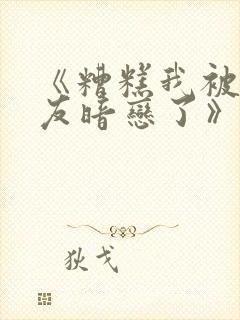 《糟糕我被
友暗戀了》
狄戈